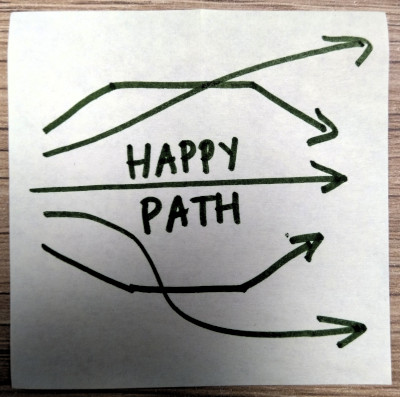 HAPPY
PATH